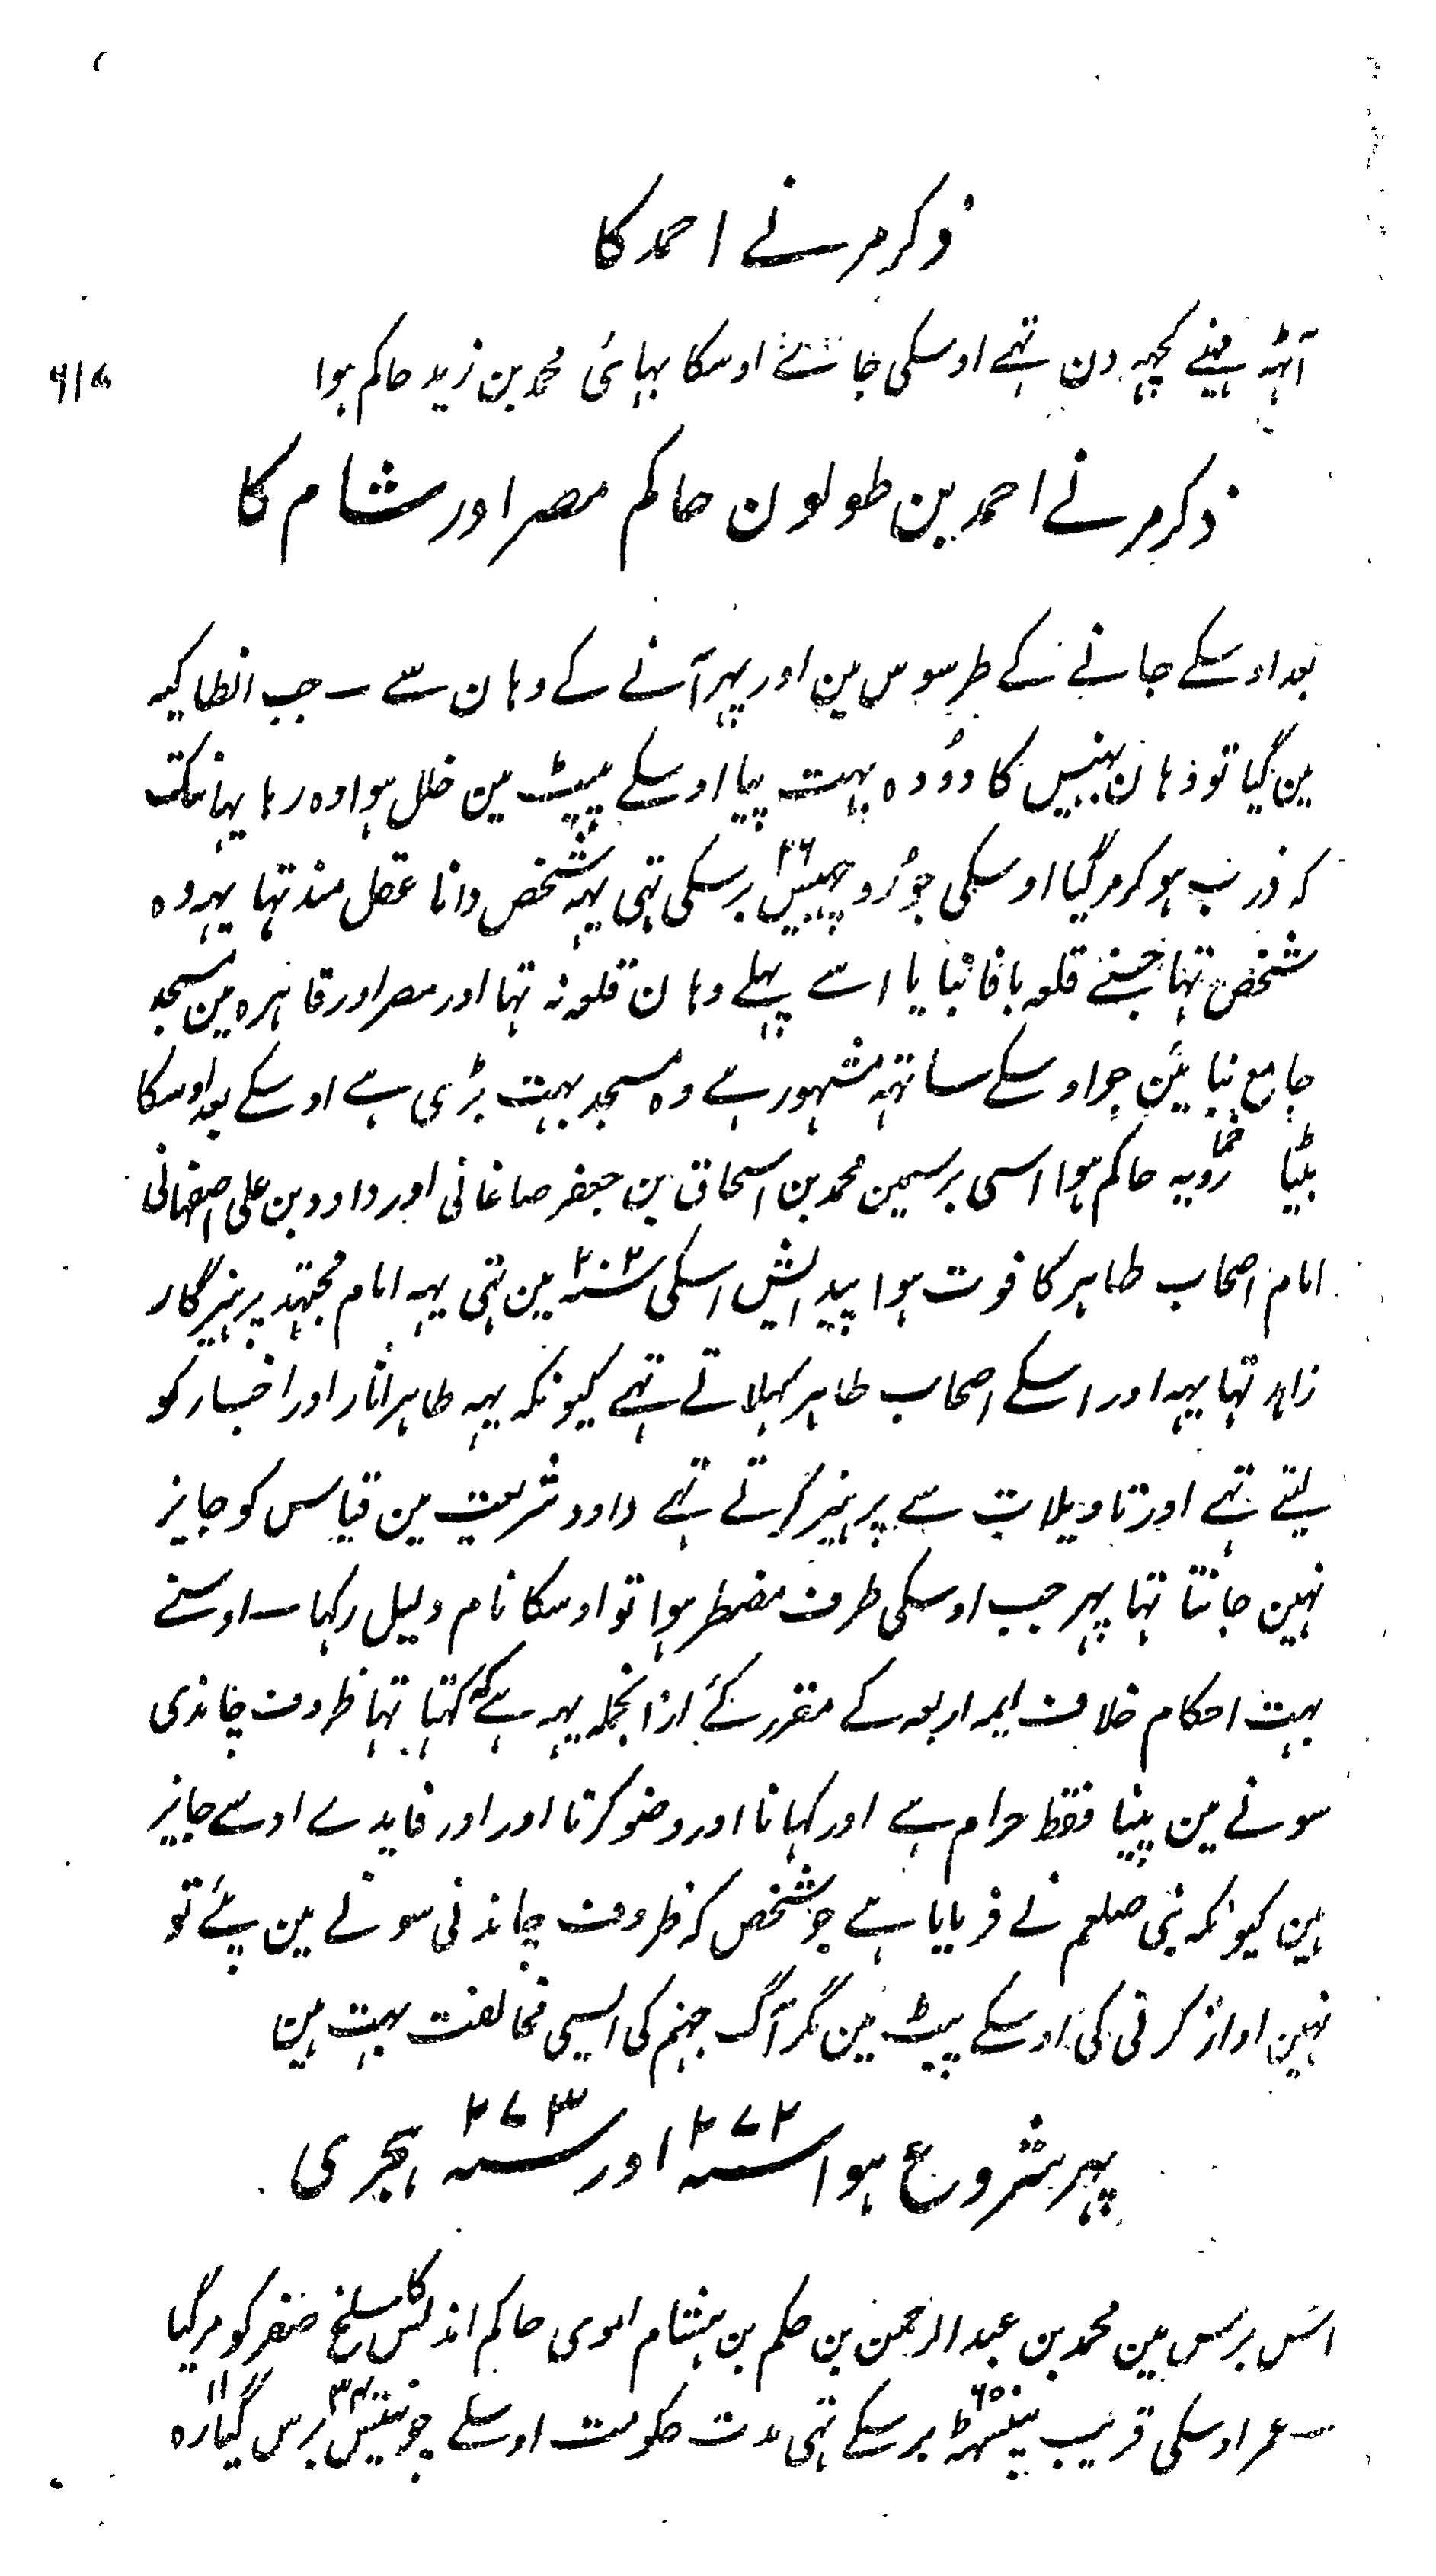 ذکر مرنے احمد کا
آٹہہ مہینے کچہہ دن تہے اوسکی جائے اوسکا بہائی محمد بن زید حاکم ہوا
ذکر مرنے احمد بن طولون حاکم مصر اور شام کا
بعد اوسکے جانے کے طرسوس مین اور پہر آنے کے وہان سے ـ جب انطاکیہ
مین گیا تو وہان بہینس کا دودہ بہت پیا اوسکے پیٹ مین خلل ہوا وہ رہا یہانتک
کہ ذرب ہو کر مر گیا اوسکی جورو چہبیس ۲۶ برسکی تہی یہہ شخص دانا عقل مند تہا یہہ وہ
شخص تہا جسنے قلعہ یافا بنایا اسے پہلے وہان قلعہ نہ تہا اور مصر اور قاہرہ مین مسجد
جامع بنایئن جو اوسکے ساتہہ مشہور ہے وہ مسجد بہت بڑی ہے اوسکے بعد اوسکا
بیٹا خمارویہ حاکم ہوا اسی برسمین محمد بن اسحاق بن جعفر صاغانی اور داود بن علی اصفہانی
امام اصحاب ظاہر کا فوت ہوا پیدایش اسکی سنہ ۲۰۲ مین تہی یہہ امام مجتہد پرہیزگار
زاہد تہا یہہ اور اسکے اصحاب ظاہر کہلاتے تہے کیونکہ یہہ ظاہر اثار اور اخبار کو
لیتے تہے اور تاویلات سے پرہیز کرتے تہے داود شریعت مین قیاس کو جایز
نہین جانتا تہا پہر جب اوسکی طرف مضطر ہوا تو اوسکا نام دلیل رکہا ـ اوسنے
بہت احکام خلاف ایمہ اربعہ کے مقرر کئے ازانجملہ یہہ ہے کہ کہتا تہا ظروف چاندی
سونے مین پینا فقط حرام ہے اور کہانا اور وضو کرنا اور اور فایدے اوسے جایز
ہین کیونکہ نبی صلعم نے فرمایا ہے جو شخص کہ ظروف چاندنی سونے مین پئے تو
نہین اواز کرتی کی اوسکے پیٹ مین مگر آگ جہنم کی ایسی مخالفت بہت ہین
پہر شروع ہوا سنہ ۲۷۲ اور سنہ ۲۷۳ ہجری
اس برس مین محمد بن عبد الرحمن بن حکم بن ہشام اموی حاکم اندلس کا سلخ صفر کو مر گیا
ـ عمر اوسکی قریب پینسٹہہ ۶۵ برسکے تہی مدت حکومت اوسکے چونتیس ۳۴ برس گیارہ ۱۱